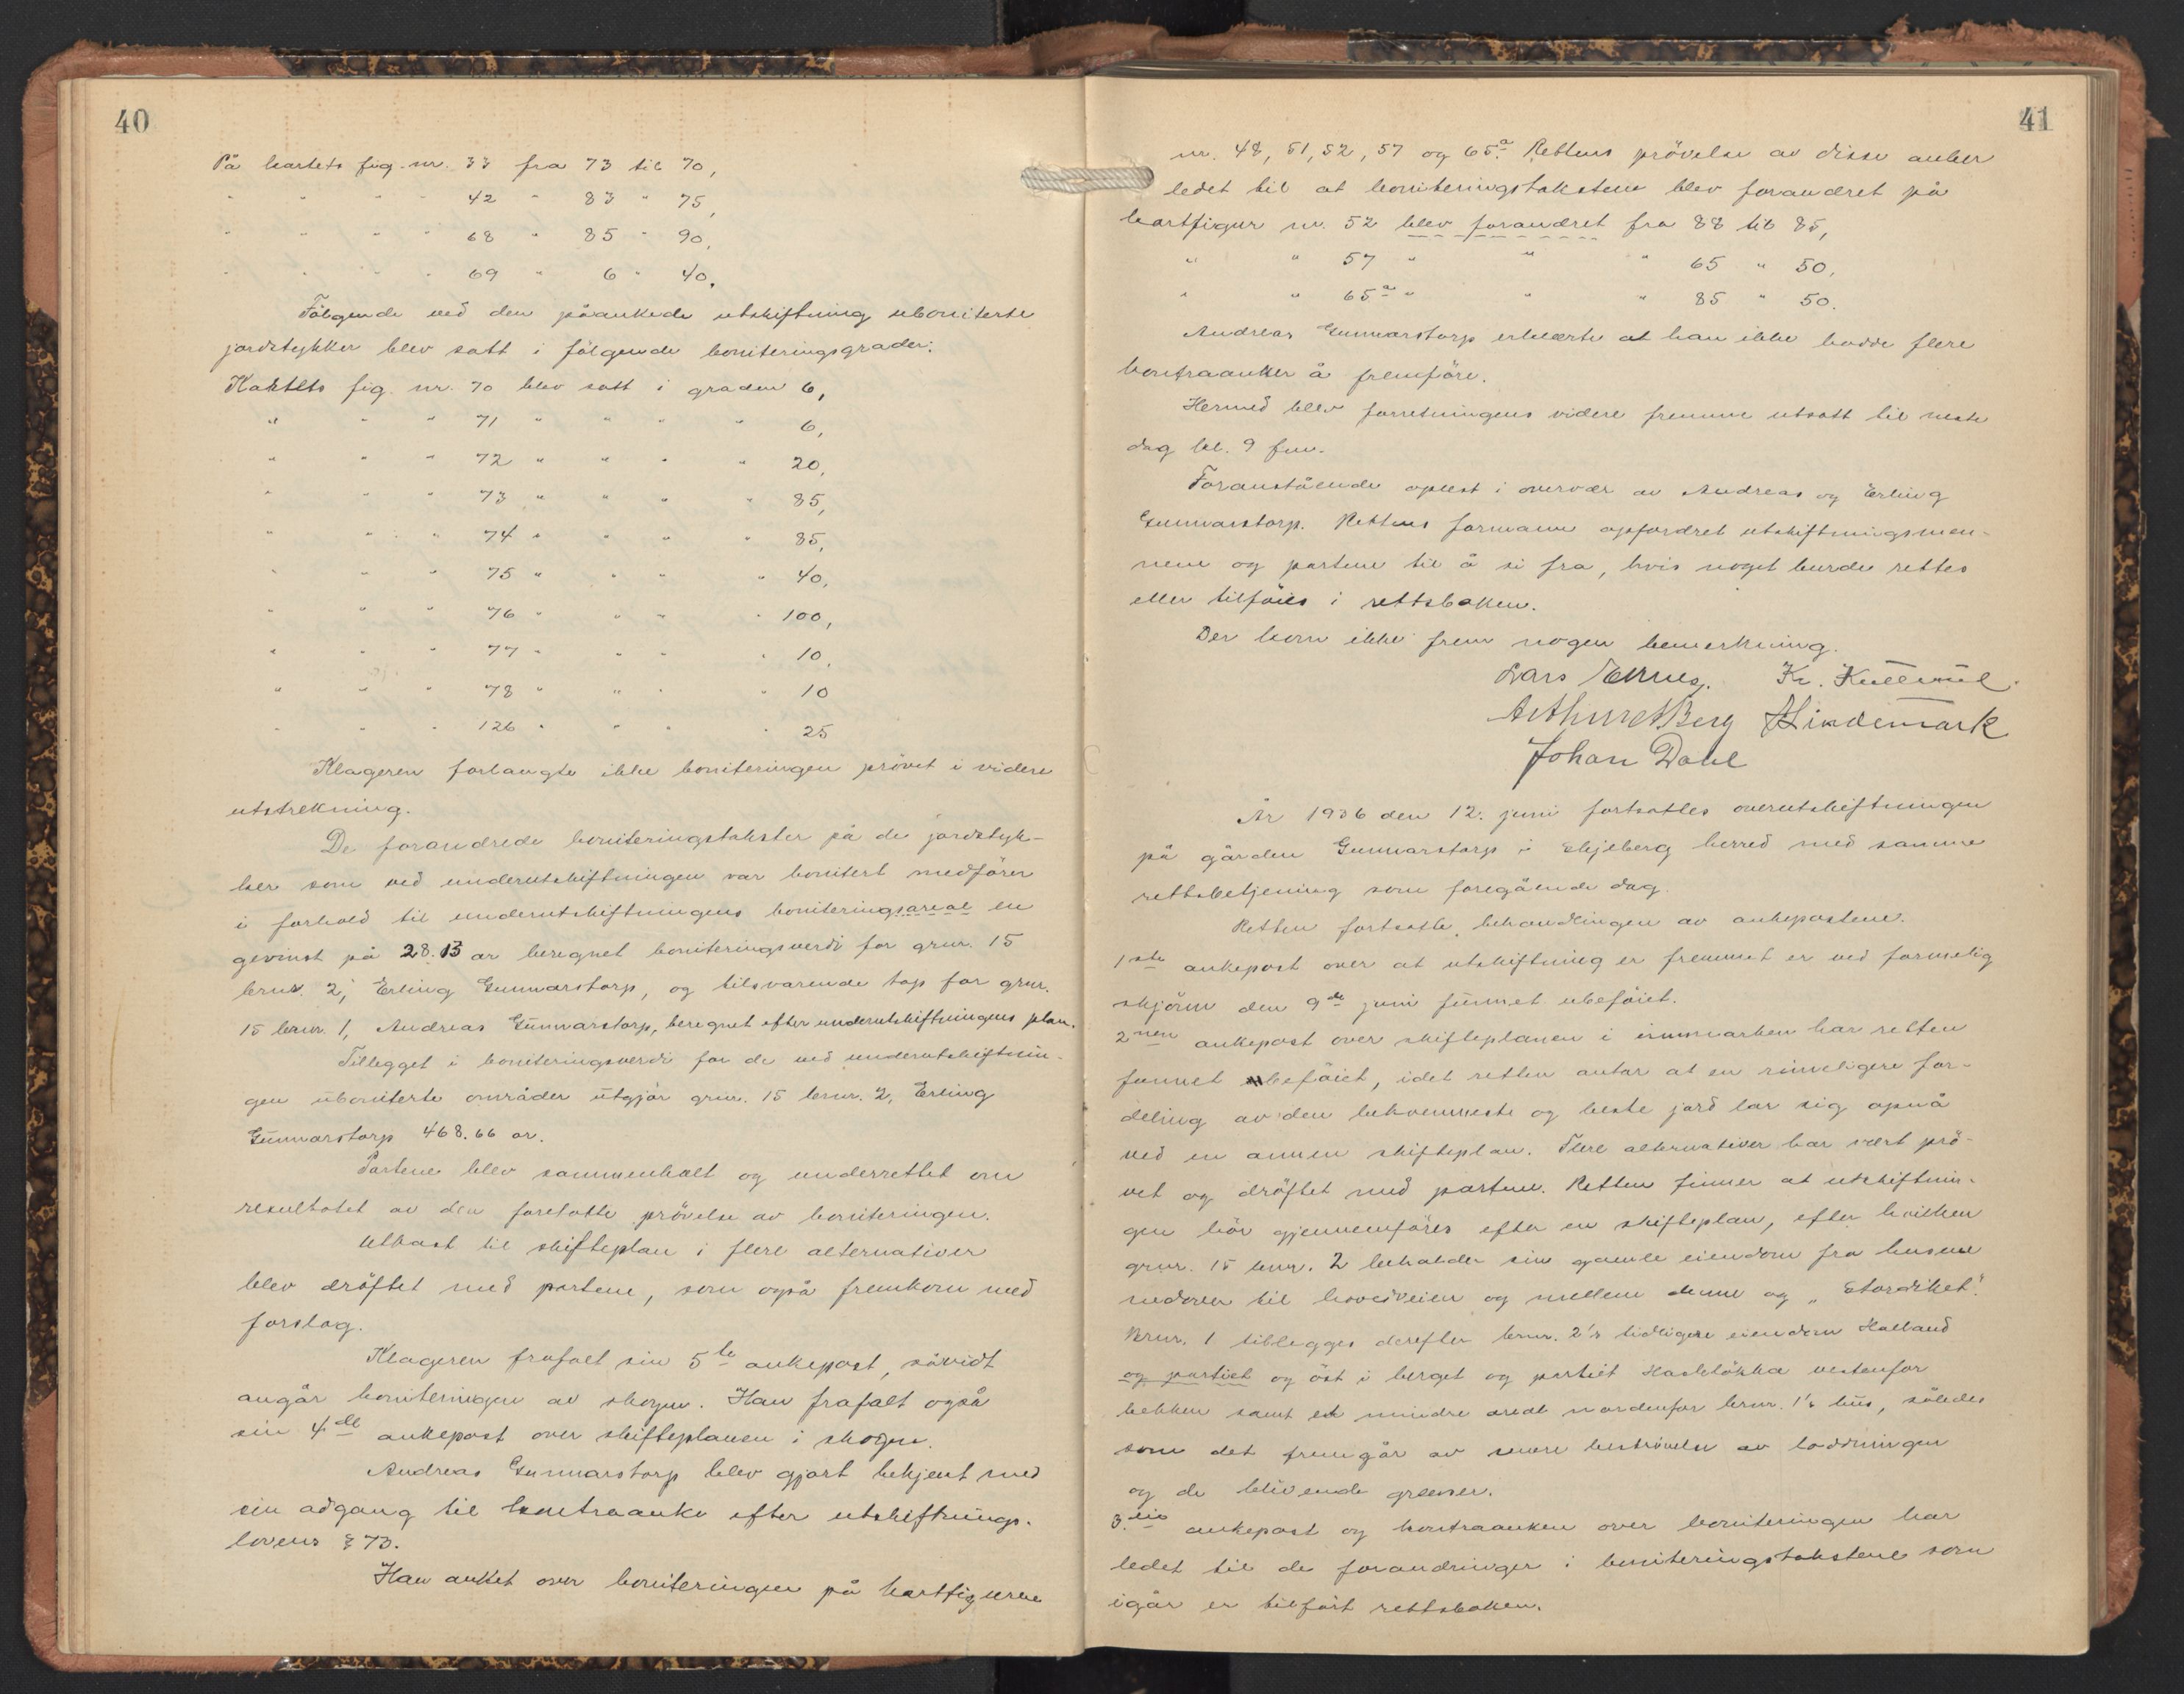 40
På kartets fig. nr. 33 fra 73 til 70,
" " " " 42 " 83 " 75,
" " " " 68 " 85 " 90,
" " " " 69 " 6 " 40.
Følgende ved den påankede utskiftning uboniterte
jordstykker blev satt i følgende boniteringsgrader:
Kartets fig. nr. 70 blev satt i graden 6,
" " " 71 " " " " 6,
" " " 72 " " " " 20,
" " " 73 " " " " 85,
" " " 74 " " " " 85,
" " " 75 " " " " 40,
" " " 76 " " " " 100,
" " " 77 " " " " 10,
" " " 78 " " " " 10
" " " 126 " " " " 25
Klageren forlangte ikke boniteringen prövet i videre
utstrekning.
De forandrede boniteringstakster på de jordstyk-
ker som ved underutskiftningen var bonitert medförer
i forhold til underutskiftningens boniteringsareal en
gevinst på 28.13 ar beregnet boniteringsverdi for grnr. 15
brnr. 2, Erling Gunnarstorp, og tilsvarende tap for grnr.
15 brnr. 1, Andreas Gunnarstorp, beregnet efter underutskiftningens plan.
Tillegget i boniteringsverdi for de ved underutskiftnin-
gen uboniterte områder utgjör grnr. 15 brnr. 2, Erling
Gunnarstorp 468.66 ar.
Partene blev sammenkalt og underrettet om
resultatet av den foretatte prövelse av boniteringen.
Utkast til skifteplan i flere alternativer
blev dröftet med partene, som også fremkom med
forslag.
Klageren frafalt sin 5te ankepost, såvidt
angår boniteringen av skogen. Han frafalt også
sin 4de ankepost over skifteplanen i skogen.
Andreas Gunnarstorp blev gjort bekjent med
sin adgang til kontraanke efter utskiftnings-
lovens § 73.
Han anket over boniteringen på kartfigurene
41
nr. 48, 51, 52, 57 og 65a. Rettens prövelse av disse anker
ledet til at boniteringstakstene blev forandret på
kartfigur nr. 52 blev forandret fra 88 til 85,
" " 57 " " " 65 " 50,
" " 65a " " " 85 " 50.
Andreas Gunnarstorp erklærte at han ikke hadde flere
kontraanker å fremföre.
Hermed blev forretningens videre fremme utsatt til neste
dag kl. 9 fm.
Foranstående oplest i overvær av Andreas og Erling
Gunnarstorp. Rettens formann opfordret utskiftningsmen-
nene og partene til å si fra, hvis noget burde rettes
eller tilföies i rettsboken.
Der kom ikke frem nogen bemerkning.
Lars Kr.
Arthur Berg Lindemark
Johan Dahl
År 1936 den 12. juni fortsattes overutskiftningen
på gården Gunnarstorp i Skjeberg herred med samme
rettsbetjening som foregående dag.
Retten fortsatte behandlingen av ankepostene.
1ste ankepost over at utskiftning er fremmet er ved formelig
skjönn den 9de juni funnet ubeföiet.
2nen ankepost over skifteplanen i innmarken har retten
funnet beföiet, idet retten antar at en rimeligere for-
deling av den bekvemmeste og beste jord lar sig opnå
ved en annen skifteplan. Flere alternativer har vært prö-
vet og dröftet med partene. Retten finner at utskiftnin-
gen bör gjennemföres efter en skifteplan, efter hvilken
grnr. 15 brnr. 2 beholder sin gamle eiendom fra husene
nedover til hovedveien og mellem denne og „Stordiket".
Brnr. 1 tillegges derefter brnr. 2's tidligere eiendom Halland
og partiet og öst i berget og partiet Hasleløkka vestenfor
bekken samt et mindre areal nordenfor brnr. 1's hus, således
som det fremgår av senere beskrivelse av loddningen
og de blivende grenser.
3die ankepost og kontraanken over boniteringen har
ledet til de forandringer i boniteringstakstene som
igår er tilfört rettsboken.